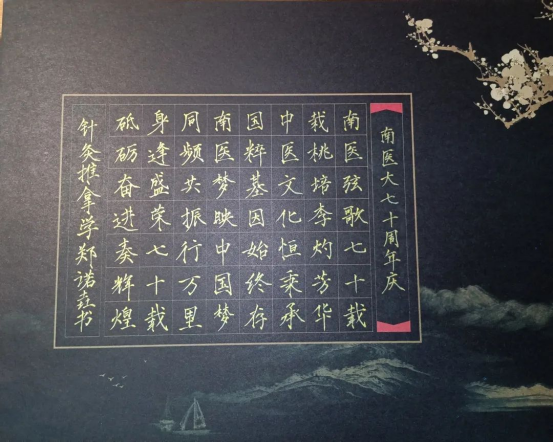 南医大七十周年庆
南医弦歌七十载
栽桃培李灼芳华
中医文化恒秉承
国粹基因始终存
南医梦映中国梦
同频共振行万里
身逢盛荣七十载
砥砺奋进奏辉煌
针灸推拿学郑诺垚书